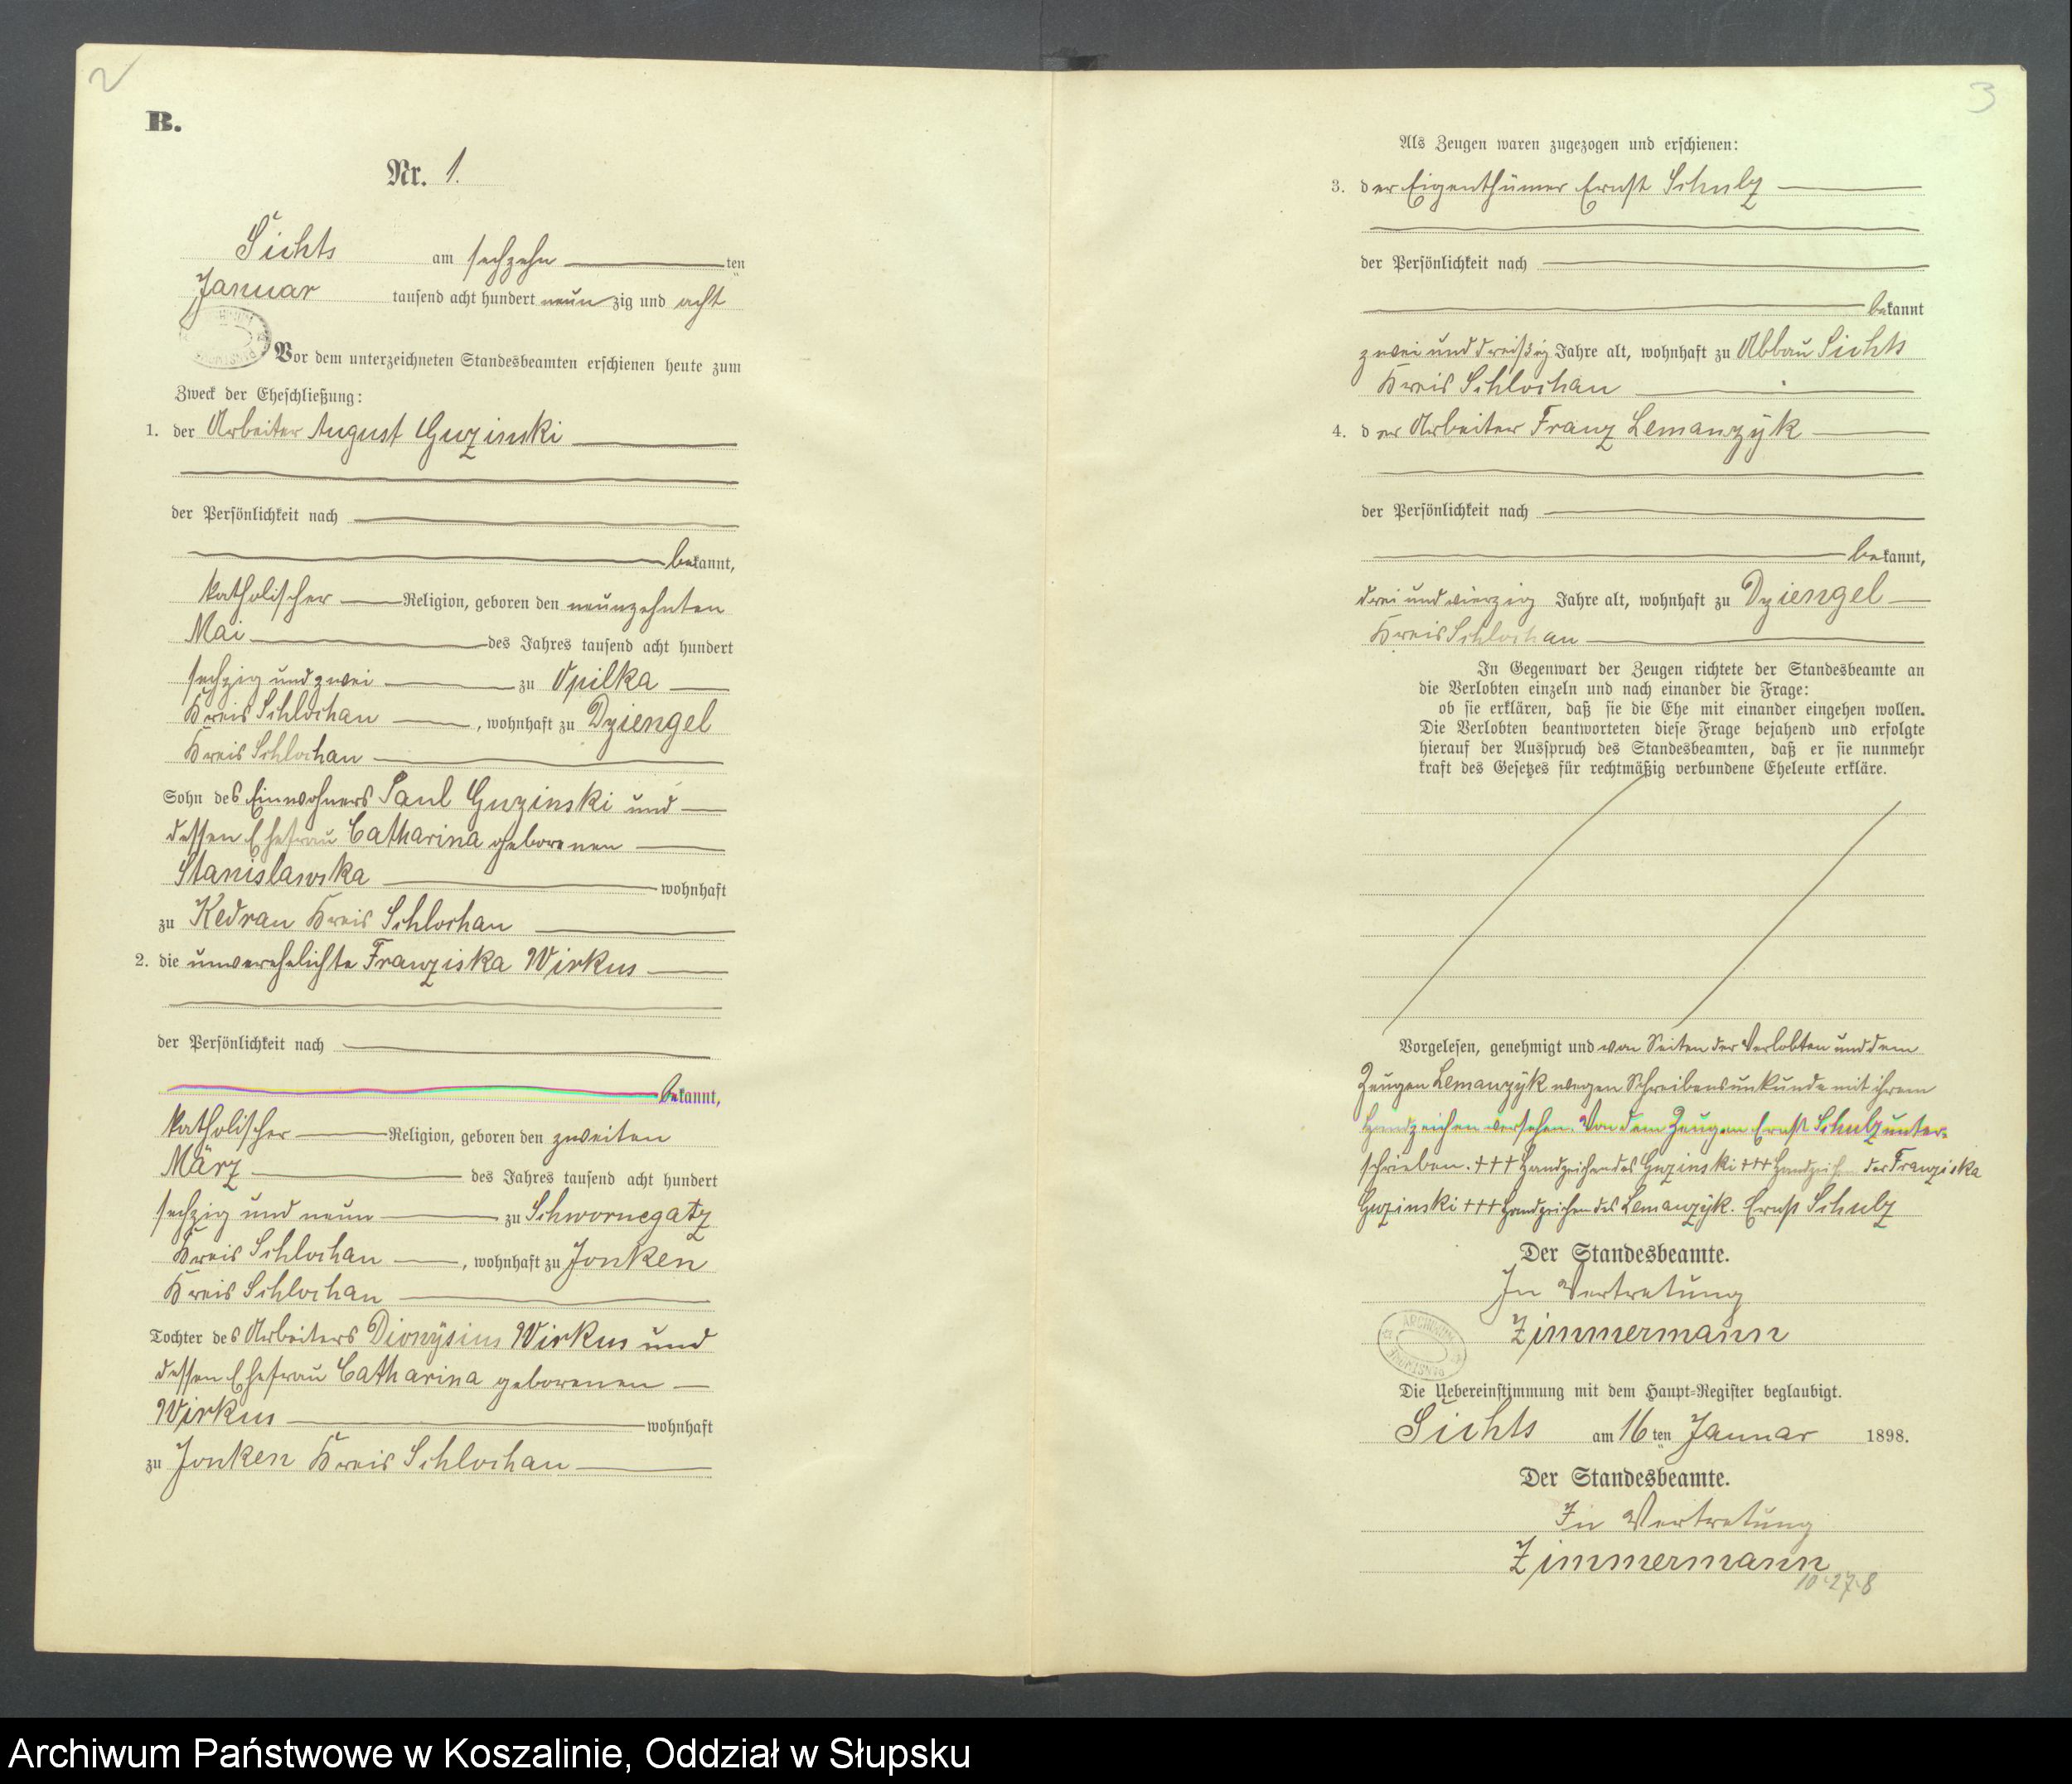 2
B.
Nr. 1.
Sichts am sechzehn ten
Januar tausend acht hundert neun zig und acht
Vor dem unterzeichneten Standesbeamten erschienen heute zum
Zweck der Eheschließung:
1. der Arbeiter August Guzinski
der Persönlichkeit nach
bekannt,
katholischer Religion, geboren den neunzehnten
Mai des Jahres tausend acht hundert
sechzig und zwei zu Opilka
Kreis Schlochau, wohnhaft zu Dziengel
Kreis Schlochau
Sohn des Einwohners Paul Guzinski und
dessen Ehefrau Catharina geborenen
Stanislawska wohnhaft
zu Kedrau Kreis Schlochau
2. die unverehelichte Franziska Wirkus
der Persönlichkeit nach
bekannt,
katholischer Religion, geboren den zweiten
März des Jahres tausend acht hundert
sechzig und neun zu Schwornegatz
Kreis Schlochau, wohnhaft zu Jonken
Kreis Schlochau
Tochter des Arbeiters Dionÿsius Wirkus und
dessen Ehefrau Catharina geborenen
Wirkus wohnhaft
zu Jonken Kreis Schlochau
3
Als Zeugen waren zugezogen und erschienen:
3. der Eigenthümer Ernst Schulz
der Persönlichkeit nach
bekannt
zwei und dreißig Jahre alt, wohnhaft zu Abbau Sichts
Kreis Schlochau
4. der Arbeiter Franz Lemanzÿk
der Persönlichkeit nach
bekannt,
drei und vierzig Jahre alt, wohnhaft zu Dziengel
Kreis Schlochau
In Gegenwart der Zeugen richtete der Standesbeamte an
die Verlobten einzeln und nach einander die Frage:
ob sie erklären, daß sie die Ehe mit einander eingehen wollen.
Die Verlobten beantworteten diese Frage bejahend und erfolgte
hierauf der Ausspruch des Standesbeamten, daß er sie nunmehr
kraft des Gesetzes für rechtmäßig verbundene Eheleute erkläre.
Vorgelesen, genehmigt und von Seiten der Verlobten und dem
Zeugen Lemanzÿk wegen Schreibensunkunde mit ihrem
Handzeichen versehen. Von dem Zeugen Ernst Schulz unter-
schrieben. +++ Handzeichen des Guzinski +++ Handzeichen der Franziska
Guzinski +++ Handzeichen des Lemanzÿk. Ernst Schulz
Der Standesbeamte.
In Vertretung
Zimmermann
Die Uebereinstimmung mit dem Haupt-Register beglaubigt.
Sichts am 16 ten Januar 1898.
Der Standesbeamte.
In Vertretung
Zimmermann
10-27-8
Archiwum Państwowe w Koszalinie, Oddział w Słupsku